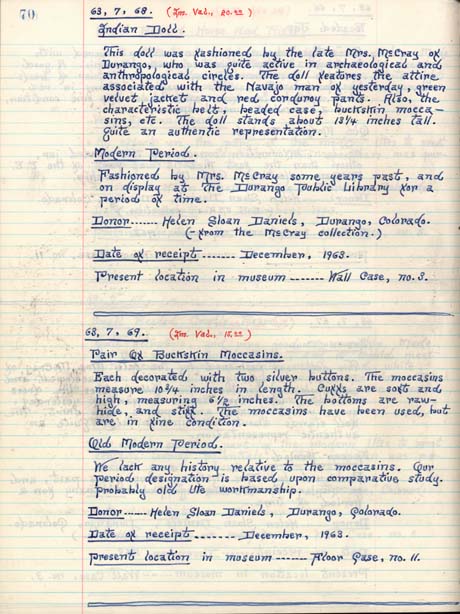 70
63, 7, 68. (Im. Val., 20.00)
Indian Doll.
This doll was fashioned by the late Mrs. McCray of
Durango, who was quite active in archaeological and
anthropological circles. The doll features the attire
associated with the Navajo man of yesterday, green
velvet jacket and red corduroy pants. Also, the
characteristic belt, beaded case, buckskin mocca-
sins, etc. The doll stands about 13 1/4 inches tall.
Quite an authentic representation.
Modern Period.
Fashioned by Mrs. McCray some years past, and
on display at the Durango Public Library for a
period of time.
Donor....... Helen Sloan Daniels, Durango, Colorado.
(-from the McCray collection.)
Date of receipt ------- December, 1963.
Present location in museum ------- Wall Case, no. 3.
63, 7, 69. (Im. Val., 15.00)
Pair Of Buckskin Moccasins.
Each decorated with two silver buttons. The moccasins
measure 10 3/4 inches in length. Cuffs are soft and
high, measuring 6 1/2 inches. The bottoms are raw-
hide, and stiff. The moccasins have been used, but
are in fine condition.
Old Modern Period.
We lack any history relative to the moccasins. Our
period designation is based upon comparative study.
Probably old Ute workmanship.
Donor------ Helen Sloan Daniels, Durango, Colorado.
Date of receipt ------- December, 1963.
Present location in museum ------ Floor Case, no. 11.